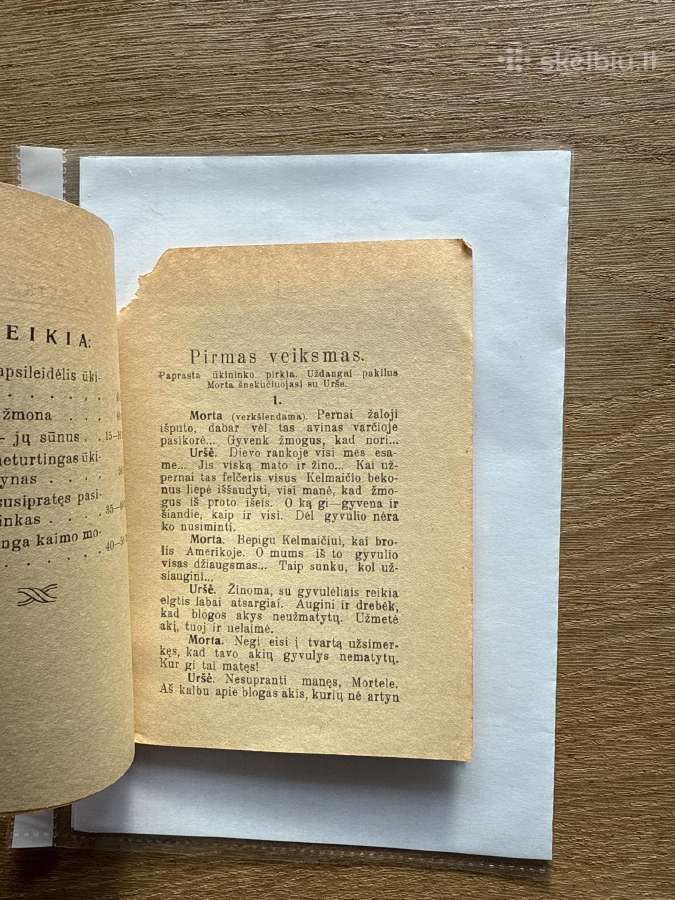 skelbiu.lt
EIKIA:
apsileidėlis ūki-
žmona
— jų sūnus
neturtingas ūki-
ynas
susipratęs pasi-
inkas
nga kaimo mo-
Pirmas veiksmas.
Paprasta ūkininko pirkia. Uždangai pakilus
Morta šnekučiuojasi su Urše.
1.
Morta (verkšlendama). Pernai žaloji
išputo, dabar vėl tas avinas varčioje
pasikorė... Gyvenk žmogus, kad nori...
Uršė. Dievo rankoje visi mes esa-
me... Jis viską mato ir žino... Kai už-
pernai tas felčeris visus Kelmaičio beko-
nus liepė iššaudyti, visi manė, kad žmo-
gus iš proto išeis. O ką gi—gyvena ir
šiandie, kaip ir visi. Dėl gyvulio nėra
ko nusiminti.
Morta. Bepigu Kelmaičiui, kai bro-
lis Amerikoje. O mums iš to gyvulio
visas džiaugsmas... Taip sunku, kol už-
siaugini...
Uršė. Žinoma, su gyvulėliais reikia
elgtis labai atsargiai. Augini ir drebėk,
kad blogos akys neužmatytų. Užmetė
akį, tuoj ir nelaimė.
Morta. Negi eisi į tvartą užsimer-
kęs, kad tavo akių gyvulys nematytų.
Kur gi tai matęs!
Uršė. Nesupranti manęs, Mortele.
Aš kalbu apie blogas akis, kurių nė artyn